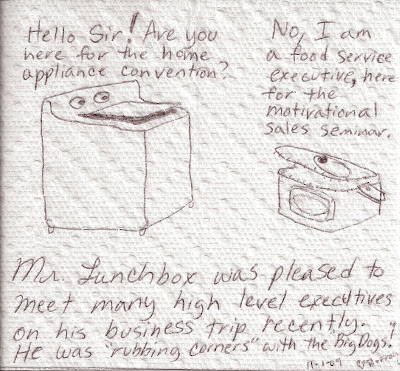 Hello Sir! Are you
here for the home
appliance convention?
No, I am
a food service
executive, here
for the
motivational
sales seminar.
Mr. Lunchbox was pleased to
meet many high level executives
on his business trip recently.
He was "rubbing corners" with the big Dogs!
11-1-09